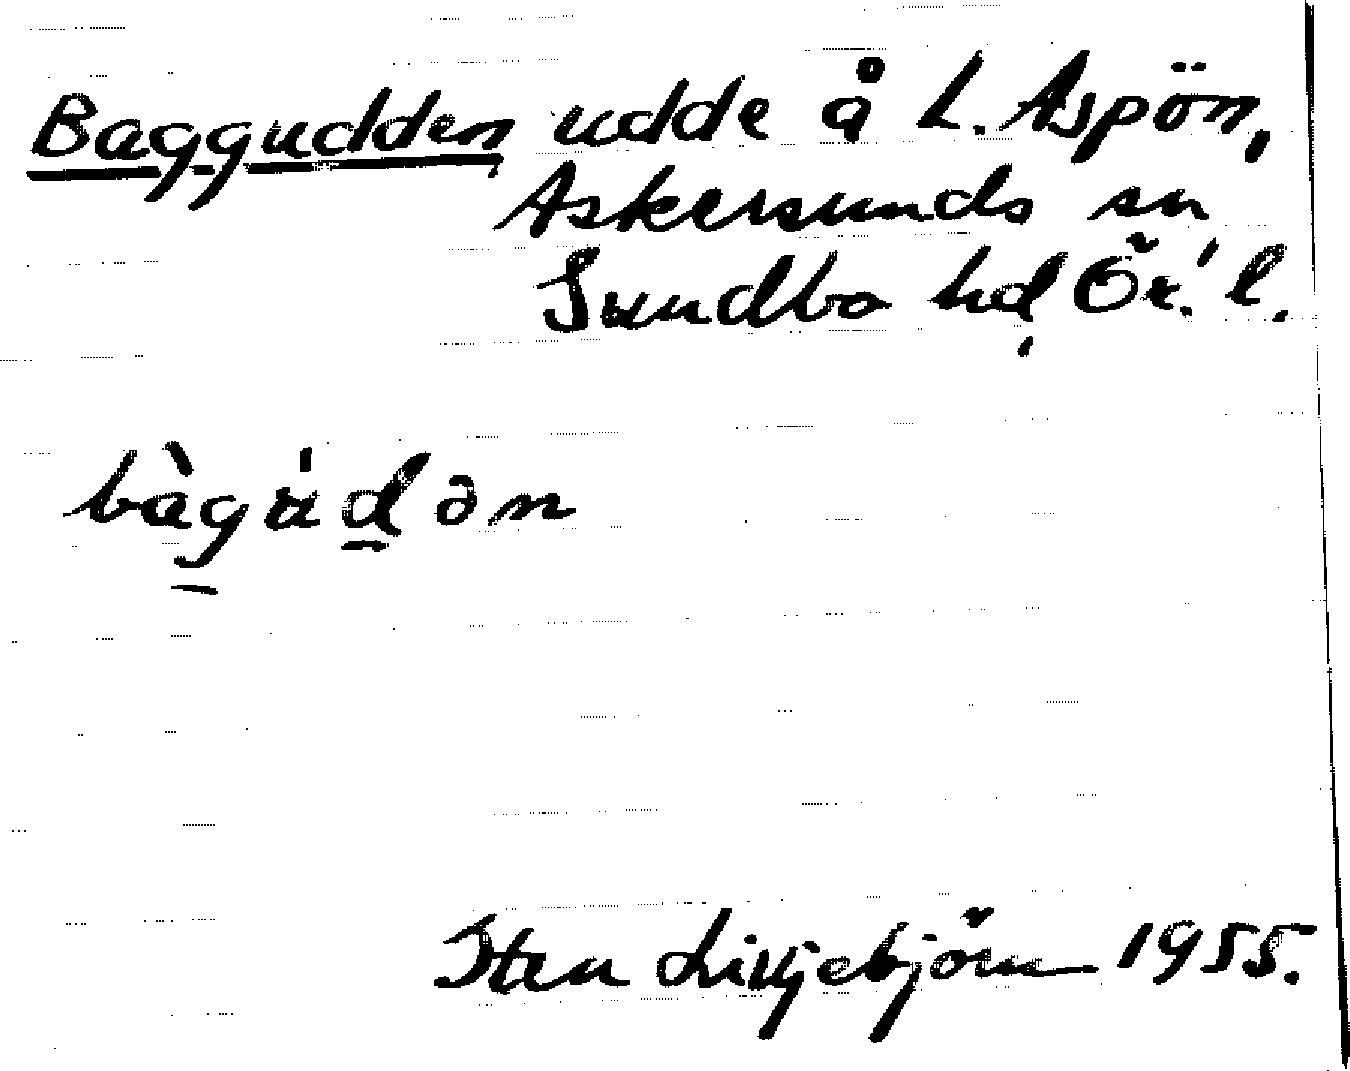 Baggudden udde å L. Aspön,
Askersunds sn
Sundbo hd, Ör. l.
bàgu̍dən
Sten Liljebjörn 1955.